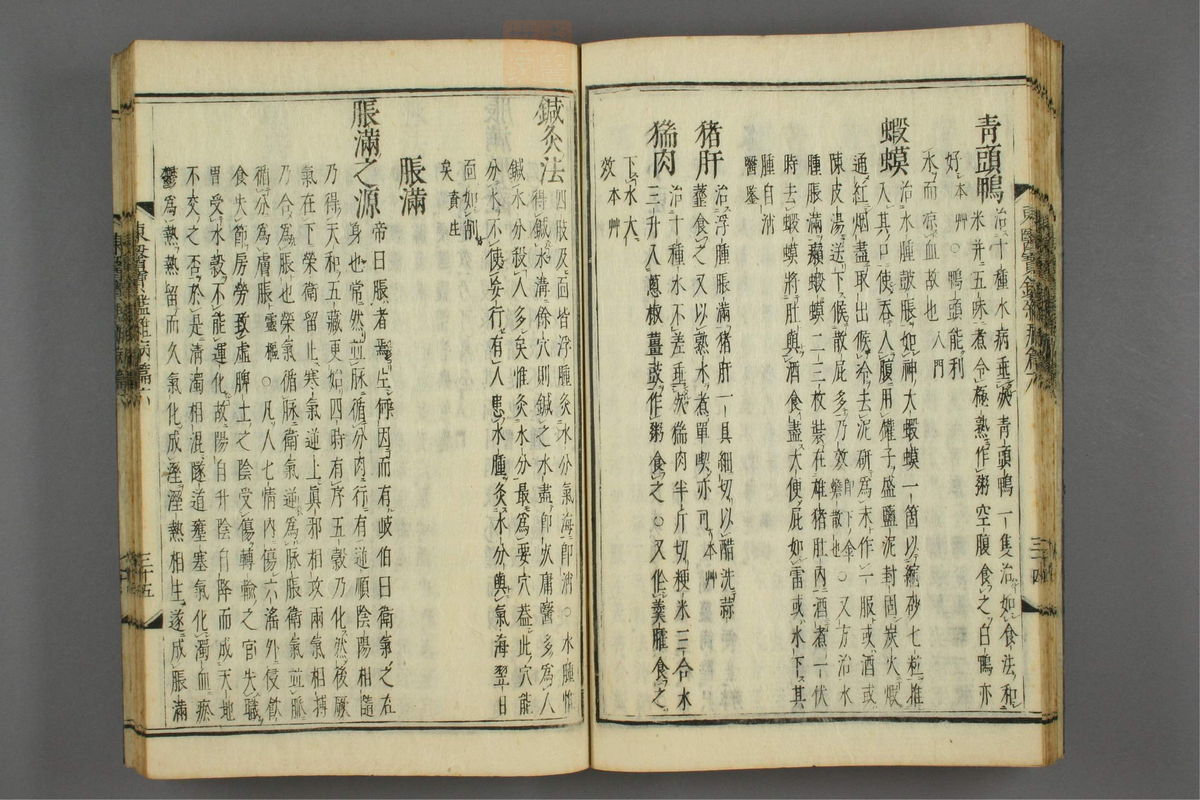 青頭鴨治十種水病垂死青頭鴨一隻治如食法和
米并五味煮令極熟作粥空腹食之白鴨亦
好本草○鴨頭能利
水而涼血故也入門
蝦蟆治水腫鼓脹如神大蝦蟆一箇以縮砂七粒推
入其口使吞入腹用罐子盛鹽泥封固炭火煆
通紅烟盡取出候冷去泥研爲末作一服或酒或
陳皮湯送下候散屁多乃效
○又方治水
腫脹滿癩蝦蟆二三枚裝在雄猪肚內酒煮一伏
時去蝦蟆將肚與酒食盡大便屁如雷或水下其
腫自消
醫鑒
猪肝治浮腫脹滿猪肝一具細切以醋洗蒜
虀食之又以熟水煮單喫亦可本草
猯肉治十種水不差垂死猯肉半斤切粳米三合水
三升入葱椒薑豉作粥食之○又作羹臛食之
下水大
效本草
東醫寶鑑雜病篇六
三十四
鍼灸法四肢及面皆浮腫灸水分氣海卽消○水腫惟
得鍼水溝餘穴則鍼之水盡卽死庸醫多爲人
鍼水分殺人多矣惟灸水分最爲要穴蓋此穴能
分水不使妄行有人患水腫灸水分與氣海翌日
面如削
矣資生
脹滿
脹滿之源帝曰脹者焉生何因而有岐伯曰衛氣之在
身也常然並脉循分肉行有逆順陰陽相隨
乃得天和五藏更始四時有序五穀乃化然後厥
氣在下榮衛留止寒氣逆上眞邪相攻兩氣相搏
乃合爲脹也榮氣循脉衛氣逆爲脉脹衛氣並脉
循分爲膚脹靈樞○凡人七情內傷六淫外侵飮
食失節房勞致虛脾土之陰受傷轉輸之官失職
胃受水穀不能運化故陽自升陰自降而成天地
不交之否於是淸濁相混隧道壅塞氣化濁血瘀
鬱爲熱熱留而久氣化成濕濕熱相生遂成脹滿
東醫寶鑑雜病篇六
三十五